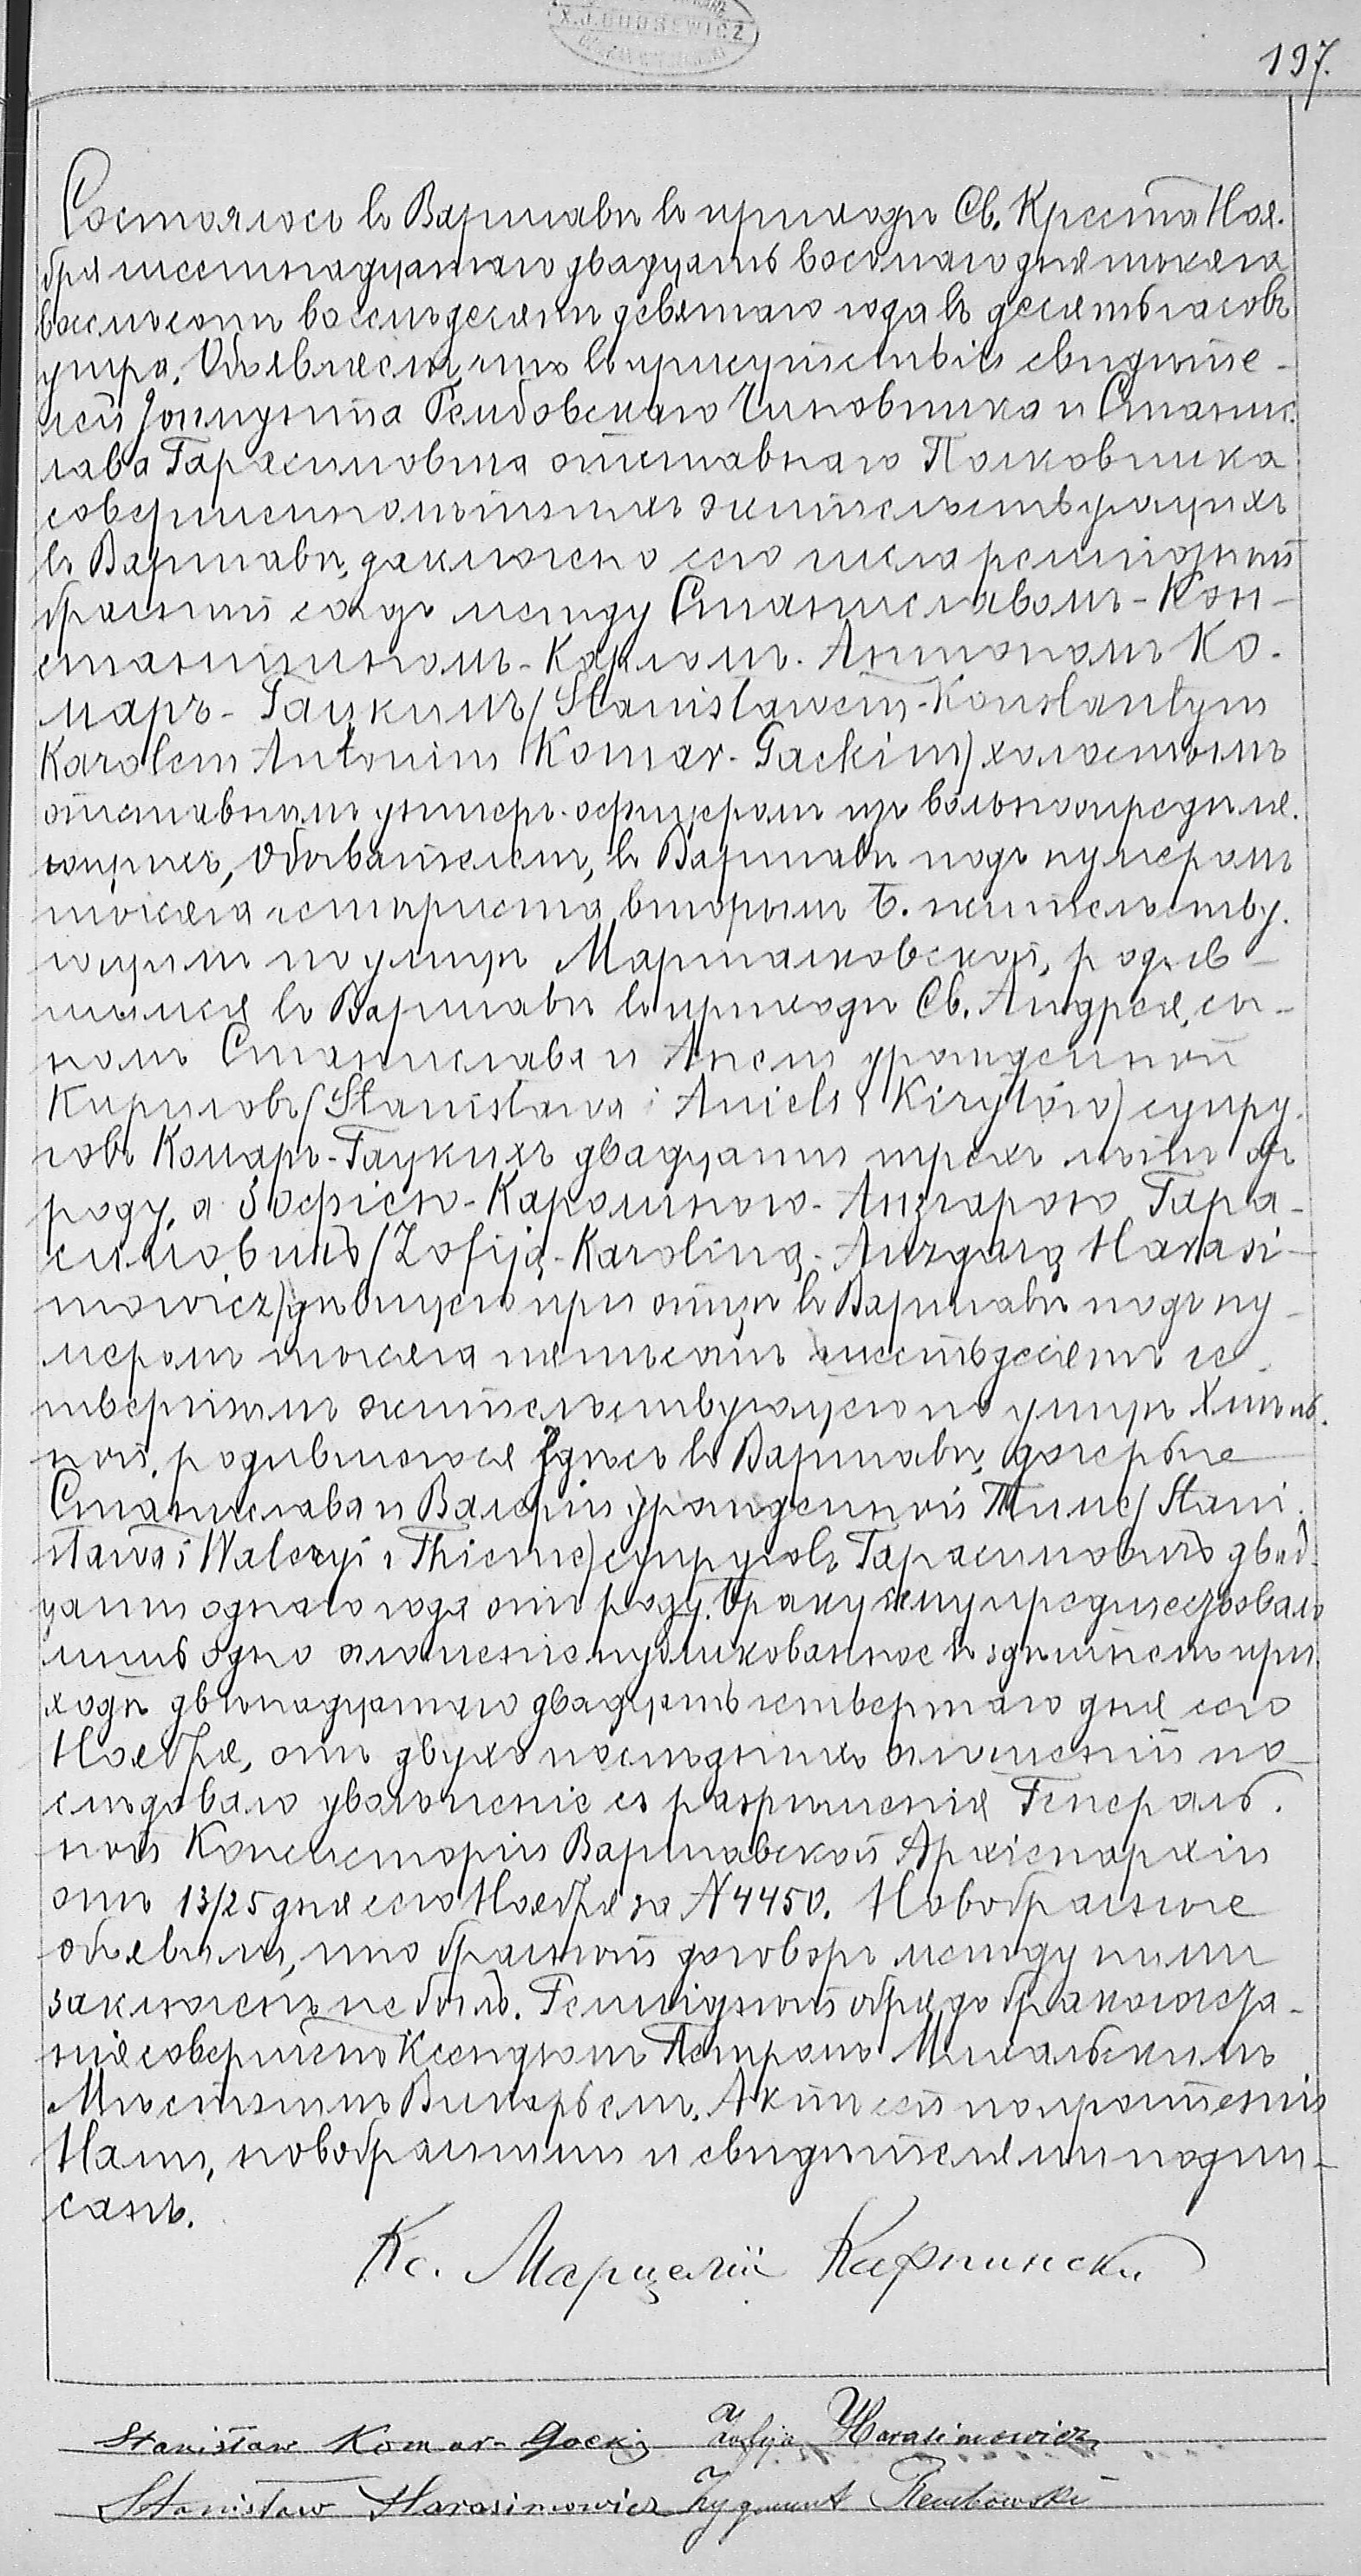 X.J.DUDREWICZ
197.
Состоялось въ Варшавѣ въ приходѣ Св. Креста Ноя-
бря шестнадцатаго двадцать восьмаго дня тысяча
восемьсотъ восемьдесятъ девятаго года въ десять часовъ
утра. Объявляемъ, что въ присутствіи свидѣте-
лей Зигмунта Рембовскаго Чиновника и Станис-
лава Гарасимовича отставнаго Полковника
совершеннолѣтнихъ жительствующихъ
въ Варшавѣ, заключенъ сего числа религіозный
брачный союзъ между Станиславомъ-Кон-
стантиномъ-Карломъ-Антономъ Ко-
маръ-Гацкимъ (Stanisławem-Konstantym
Karolem Antonim Komar-Gackim) холостымъ
отставнымъ унтеръ-офицеромъ изъ вольноопредѣля-
ющихъ, обывателемъ, въ Варшавѣ подъ нумеромъ
тысяча четыриста вторымъ Б. жительству-
ющимъ по улицѣ Маршалковской, родив-
шимся въ Варшавѣ въ приходѣ Св. Андрея, сы-
номъ Станислава и Анели урожденной
Кириловъ (Stanisława i Anieli z Kiryłów) супру-
говъ Комаръ-Гацкихъ двадцати трехъ лѣтъ отъ
роду, а Зофіею-Каролиною-Анзгарою Гара-
симовичъ (Zofiją-Karoliną-Anzgarą Harasi-
mowicz) дѣвицею при отцѣ въ Варшавѣ подъ ну-
меромъ тысяча пятьсотъ шестьдесятъ че-
твертымъ жительствующею по улицѣ Хмѣль-
ной, родившеюся здѣсь въ Варшавѣ, дочерью
Станислава и Валеріи урожденной Тиме (Stani-
sława i Waleryi z Thieme) супруговъ Гарасимовичъ двад-
цати однаго года отъ роду. Браку сему предшествовало
лишь одно оглашеніе публикованное въ здѣшнемъ при-
ходѣ двѣнадцатаго двадцать четвертаго дня сего
Ноября, отъ двухъ послѣднихъ оглашеній по-
слѣдовало уволненіе съ разрѣшенія Генераль-
ной Консисторіи Варшавской Архіепархіи
отъ 13/25 дня сего Ноября за N 4450. Новобрачные
объявили, что брачный договоръ между ними
заключенъ не былъ. Религіозный обрядъ бракосочета-
нія совершенъ Ксендзомъ Петромъ Михальскимъ
Мѣстнымъ Викаріемъ. Актъ сей по прочтеніи
Нами, новобрачными и свидѣтелями подпи-
санъ.
Кс. Марцелій Карпински
Stanisław Komar-Gacki Zofija Harasimowicz
Stanisław Harasimowicz Zygmunt Rembowski